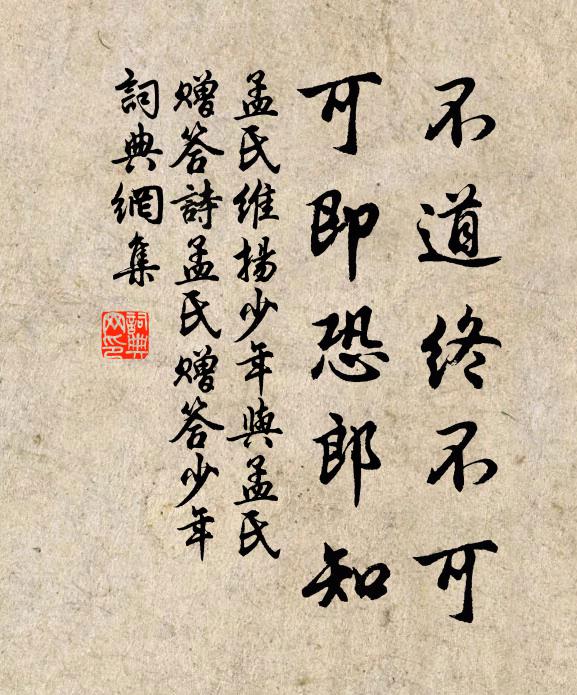 不道終不可
可即恐郎知
孟氏維揚少年與孟氏
贈答詩孟氏贈答少年
詞典網集
詞典
网印